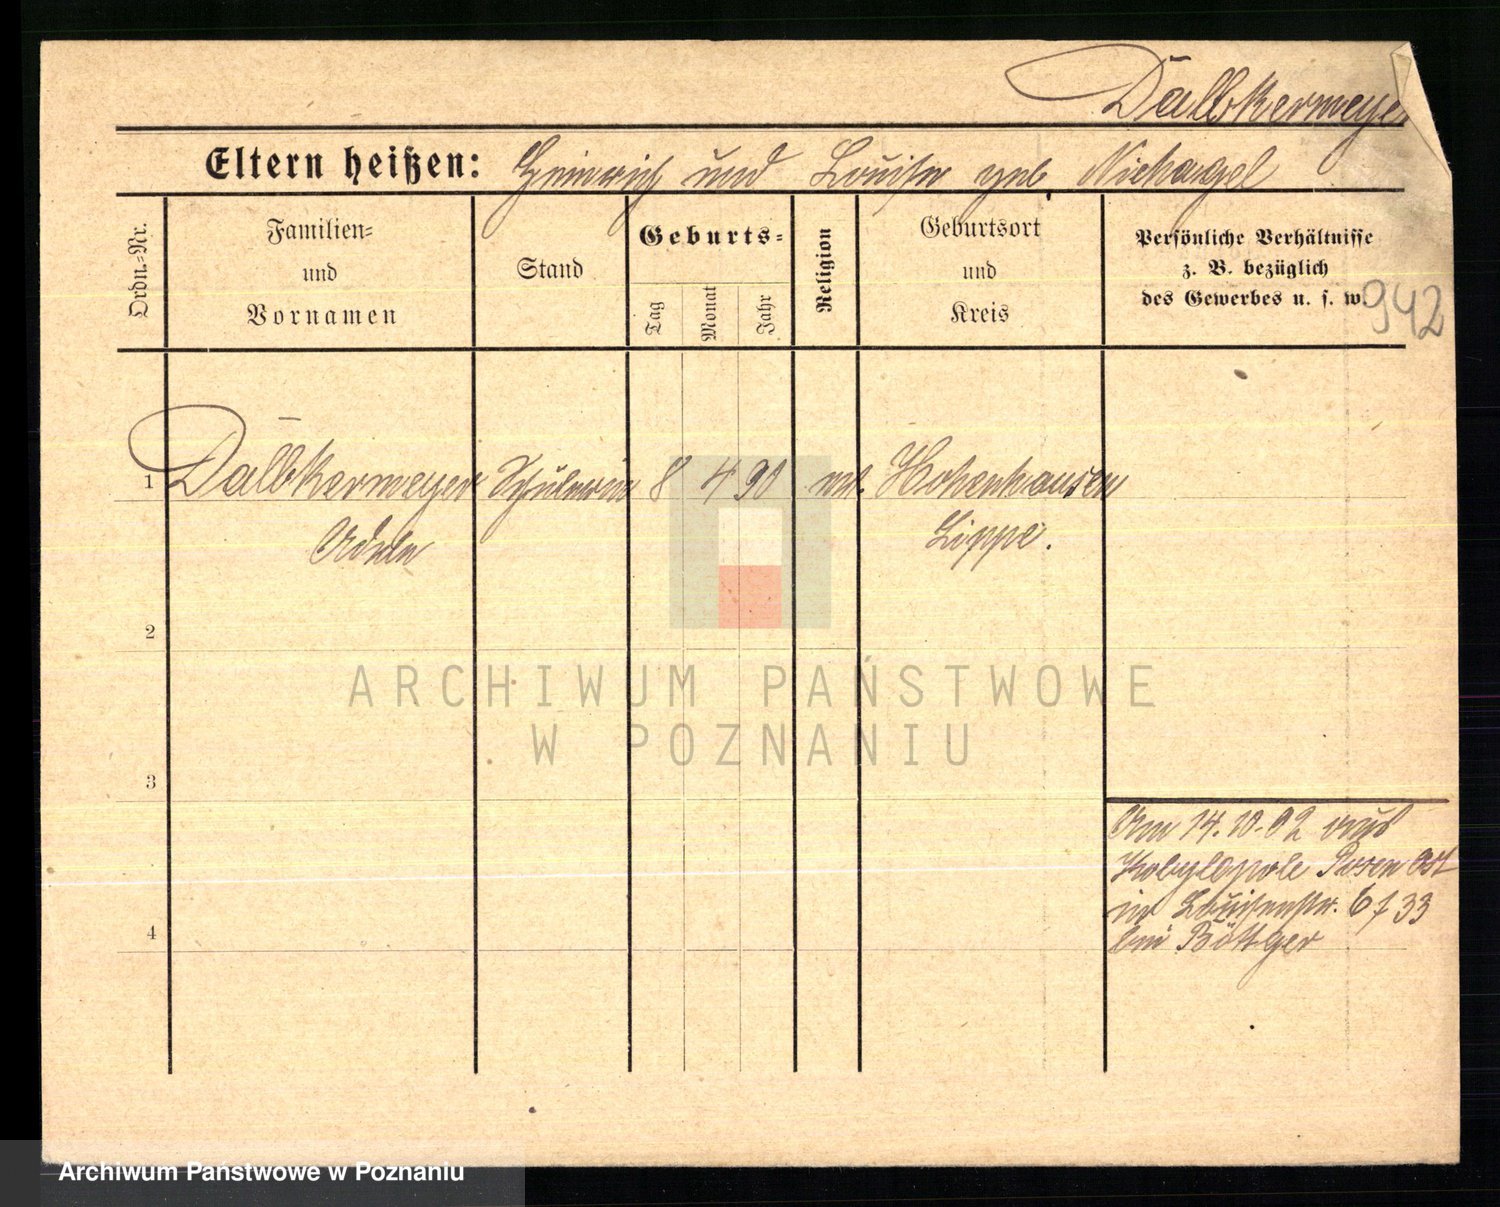 Dalbkermeyer
Eltern heißen: Heinrich und Louise geb. Niehagel
Ordn.=Nr.
Familien=
und
Vornamen
Stand
Geburts=
Tag
Monat
Jahr
Religion
Geburtsort
und
Kreis
Persönliche Verhältnisse
z. B. bezüglich
des Gewerbes u. s. w.
942
1 Dalbkermeyer Schülerin 8 4 90 ev. Hohenhausen
Adele Lippe.
2
3
4
Am 14.10.02 aus
Kobylepole Posen Ost
in Louisenstr. 6 f 33
bei Böttger
ARCHIWUM PAŃSTWOWE
W POZNANIU
Archiwum Państwowe w Poznaniu